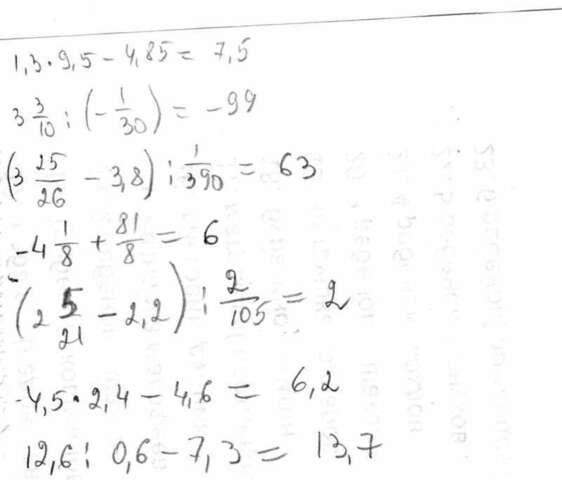 1,3 · 9,5 - 4,85 = 7,5
3 3/10 : (- 1/30) = -99
(3 25/26 - 3,8) : 1/390 = 63
-4 1/8 + 81/8 = 6
(2 5/21 - 2,2) : 2/105 = 2
4,5 · 2,4 - 4,6 = 6,2
12,6 : 0,6 - 7,3 = 13,7